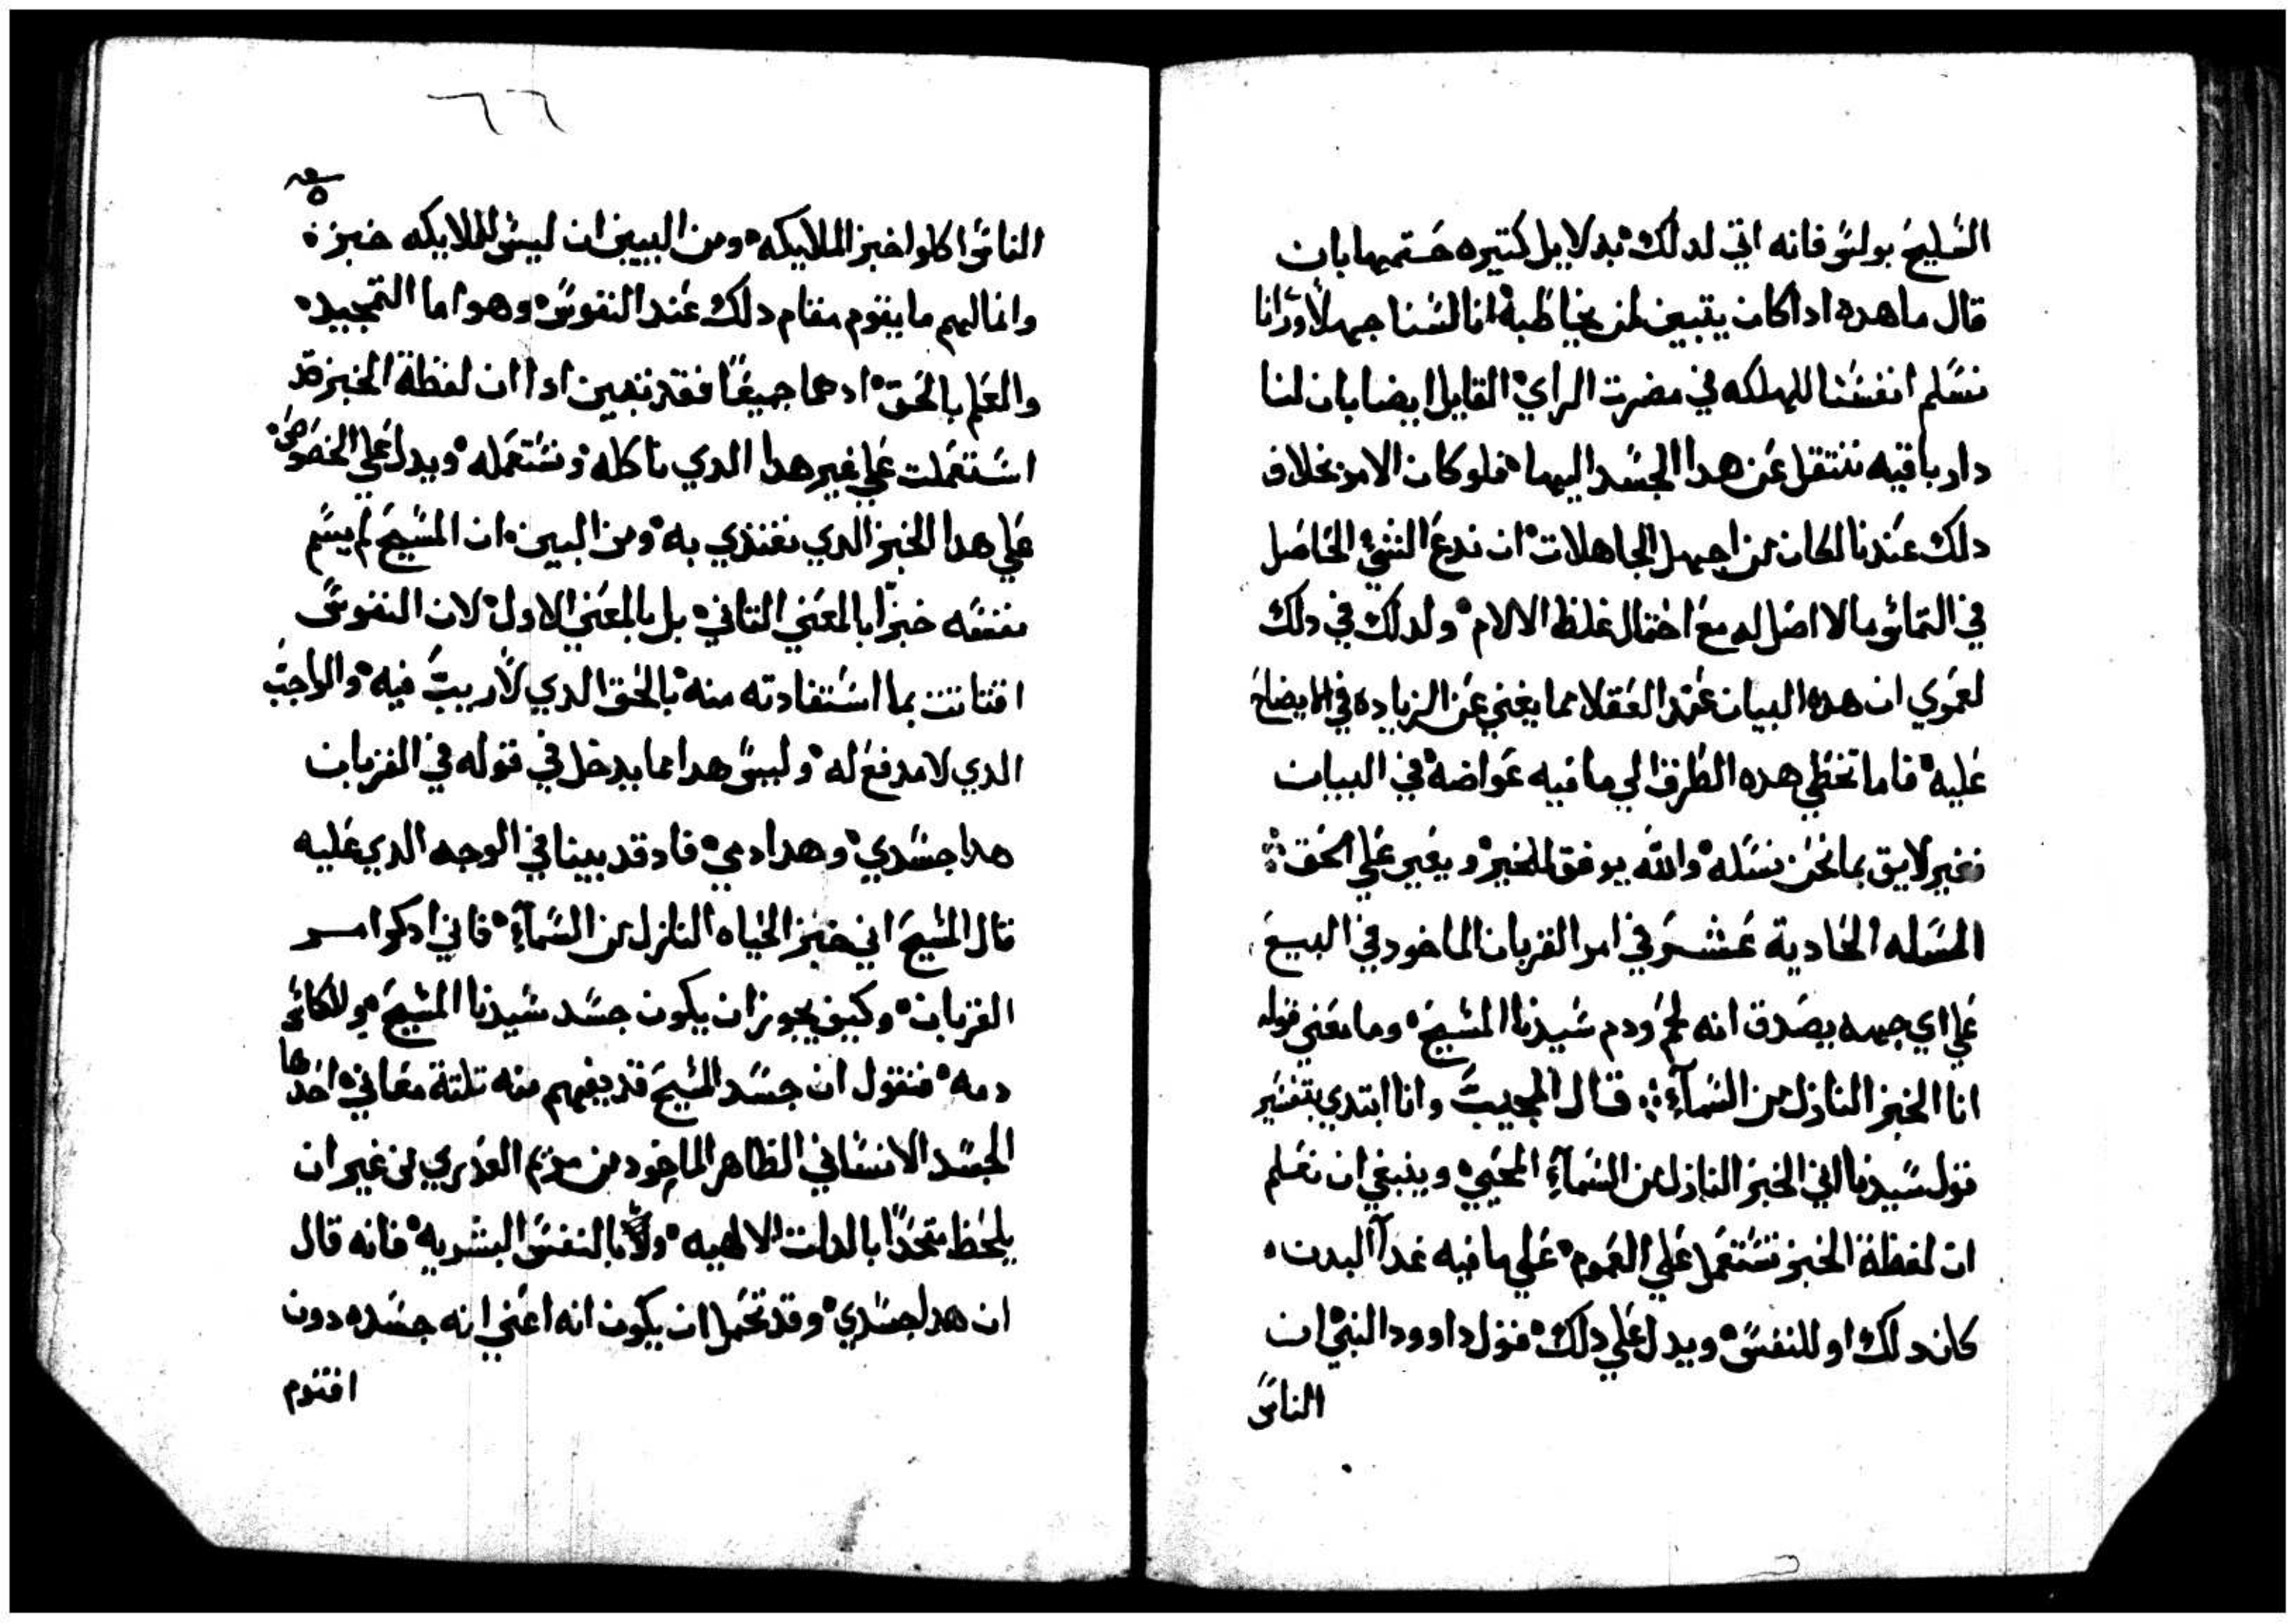 السليح بولس فانه اتي لدلك بدلايل كتيره ختمها بان
قال ما هده ادا كان يتبين لمن يخاطبه انا لسنا جهلا واننا
نسلم انفسنا للهلكه في مضرت الراي القايل ايضا بان لنا
دار باقيه ننتقل عن هدا الجسد اليها فلو كان الامر بخلاف
دلك عندنا لكان من اجهل الجاهلات ان ندع الشي الحاصل
في التماس ما لا اصل له مع احتمال غلظ الالام ولدلك في دلك
لعمري ان هده البيان عند العقلا مما يغني عن الزياده في الايضاح
عليه فاما تخطي هده الطرق الي ما فيه غواضه في البيان
فغير لايق بما نحن نسله والله يوفق للخير ويعين علي الحق
المسله الحادية عشر في امر القربان الماخود في البيع
علي اي جهه يصدق انه لحم ودم سيدنا المسيح وما معني قوله
انا الخبز النازل من السماء قال المجيب وانا ابتدي بتفسير
قول سيدنا اني الخبز النازل من السماء المحيي وينبغي ان نعلم
ان لفظة الخبز تستعمل علي العموم علي ما فيه غدا البدن
كان دلك او للنفس ويدل علي دلك قول داوود النبي ان
الناس
٦٦
الناس اكلوا خبز الملايكه ومن البين ان ليس للملايكه خبز
وانما لهم ما يقوم مقام دلك عند النفوس وهو اما التمجيد
والعلم بالحق او هما جميعا فقد تبين ادا ان لفظة الخبز قد
استعملت علي غير هدا الدي ناكله ونستعمله ويدل علي الخصوص
علي هدا الخبز الدي نغتذي به ومن البين ان المسيح لم يسم
نفسه خبزا بالمعني التاني بل بالمعني الاول لان النفوس
اقتاتت بما استفادته منه بالحق الدي لا ريب فيه والواجب
الدي لا مدفع له وليس هدا مما يدخل في قوله في القربان
هدا جسدي وهدا دمي فاد قد بينا في الوجه الدي عليه
قال المسيح اني خبز الحياه النازل من السماء فاني ادكر امر
القربان وكيف يجوز ان يكون جسد سيدنا المسيح والكاس
دمه فنقول ان جسد المسيح قد يفهم منه تلتة معاني احدها
الجسد الانساني الظاهر الماخود من مريم العدري من غير ان
يلحظ متحدا بالدات الالهيه ولا بالنفس البشريه فانه قال
ان هدا جسدي وقد تحمل ان يكون انه اعني انه جسده دون
اقنوم